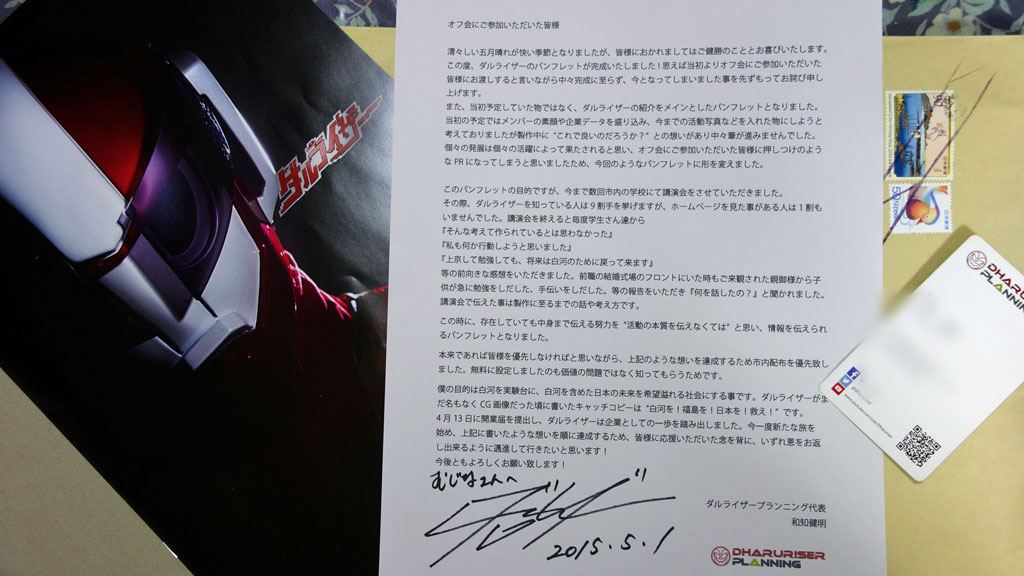 ダルライザー
オフ会にご参加いただいた皆様
清々しい五月晴れが快い季節となりましたが、皆様におかれましてはご健勝のこととお喜びいたします。
この度、ダルライザーのパンフレットが完成いたしました！思えば当初よりオフ会にご参加いただいた
皆様にお渡しすると言いながら中々完成に至らず、今となってしまいました事を先ずもってお詫び申し
上げます。
また、当初予定していた物ではなく、ダルライザーの紹介をメインとしたパンフレットとなりました。
当初の予定ではメンバーの素顔や企業データを盛り込み、今までの活動写真などを入れた物にしようと
考えておりましたが製作中に“これで良いのだろうか？”との想いがあり中々筆が進みませんでした。
個々の発展は個々の活躍によって果たされると思い、オフ会にご参加いただいた皆様に押しつけのよう
な PR になってしまうと思いましたため、今回のようなパンフレットに形を変えました。
このパンフレットの目的ですが、今まで数回市内の学校にて講演会をさせていただきました。
その際、ダルライザーを知っている人は 9 割手を挙げますが、ホームページを見た事がある人は 1 割も
いませんでした。講演会を終えると毎度学生さん達から
『そんな考えて作られているとは思わなかった』
『私も何か行動しようと思いました』
『上京して勉強しても、将来は白河のために戻って来ます』
等の前向きな感想をいただきました。前職の結婚式場のフロントにいた時もご来観された親御様から子
供が急に勉強をしだした、手伝いをしだした。等の報告をいただき『何を話したの？』と聞かれました。
講演会で伝えた事は製作に至るまでの話や考え方です。
この時に、存在していても中身まで伝える努力を“活動の本質を伝えなくては”と思い、情報を伝えられ
るパンフレットとなりました。
本来であれば皆様を優先しなければと思いながら、上記のような想いを達成するため市内配布を優先致し
ました。無料に設定しましたのも価値の問題ではなく知ってもらうためです。
僕の目的は白河を実験台に、白河を含めた日本の未来を希望溢れる社会にする事です。ダルライザーがま
だ名もなく CG 画像だった頃に書いたキャッチコピーは“白河を！福島を！日本を！救え！”です。
4 月 13 日に開業届を提出し、ダルライザーは企業としての一歩を踏み出しました。今一度新たな旅を
始め、上記に書いたような想いを順に達成するため、皆様に応援いただいた念を背に、いずれ恩をお返
し出来るように邁進して行きたいと思います！
今後ともよろしくお願い致します！
むじなさんへ
2015.5.1
ダルライザープランニング代表
和知健明
DHARURISER
PLANNING
50
DHARURISER
PLANNING